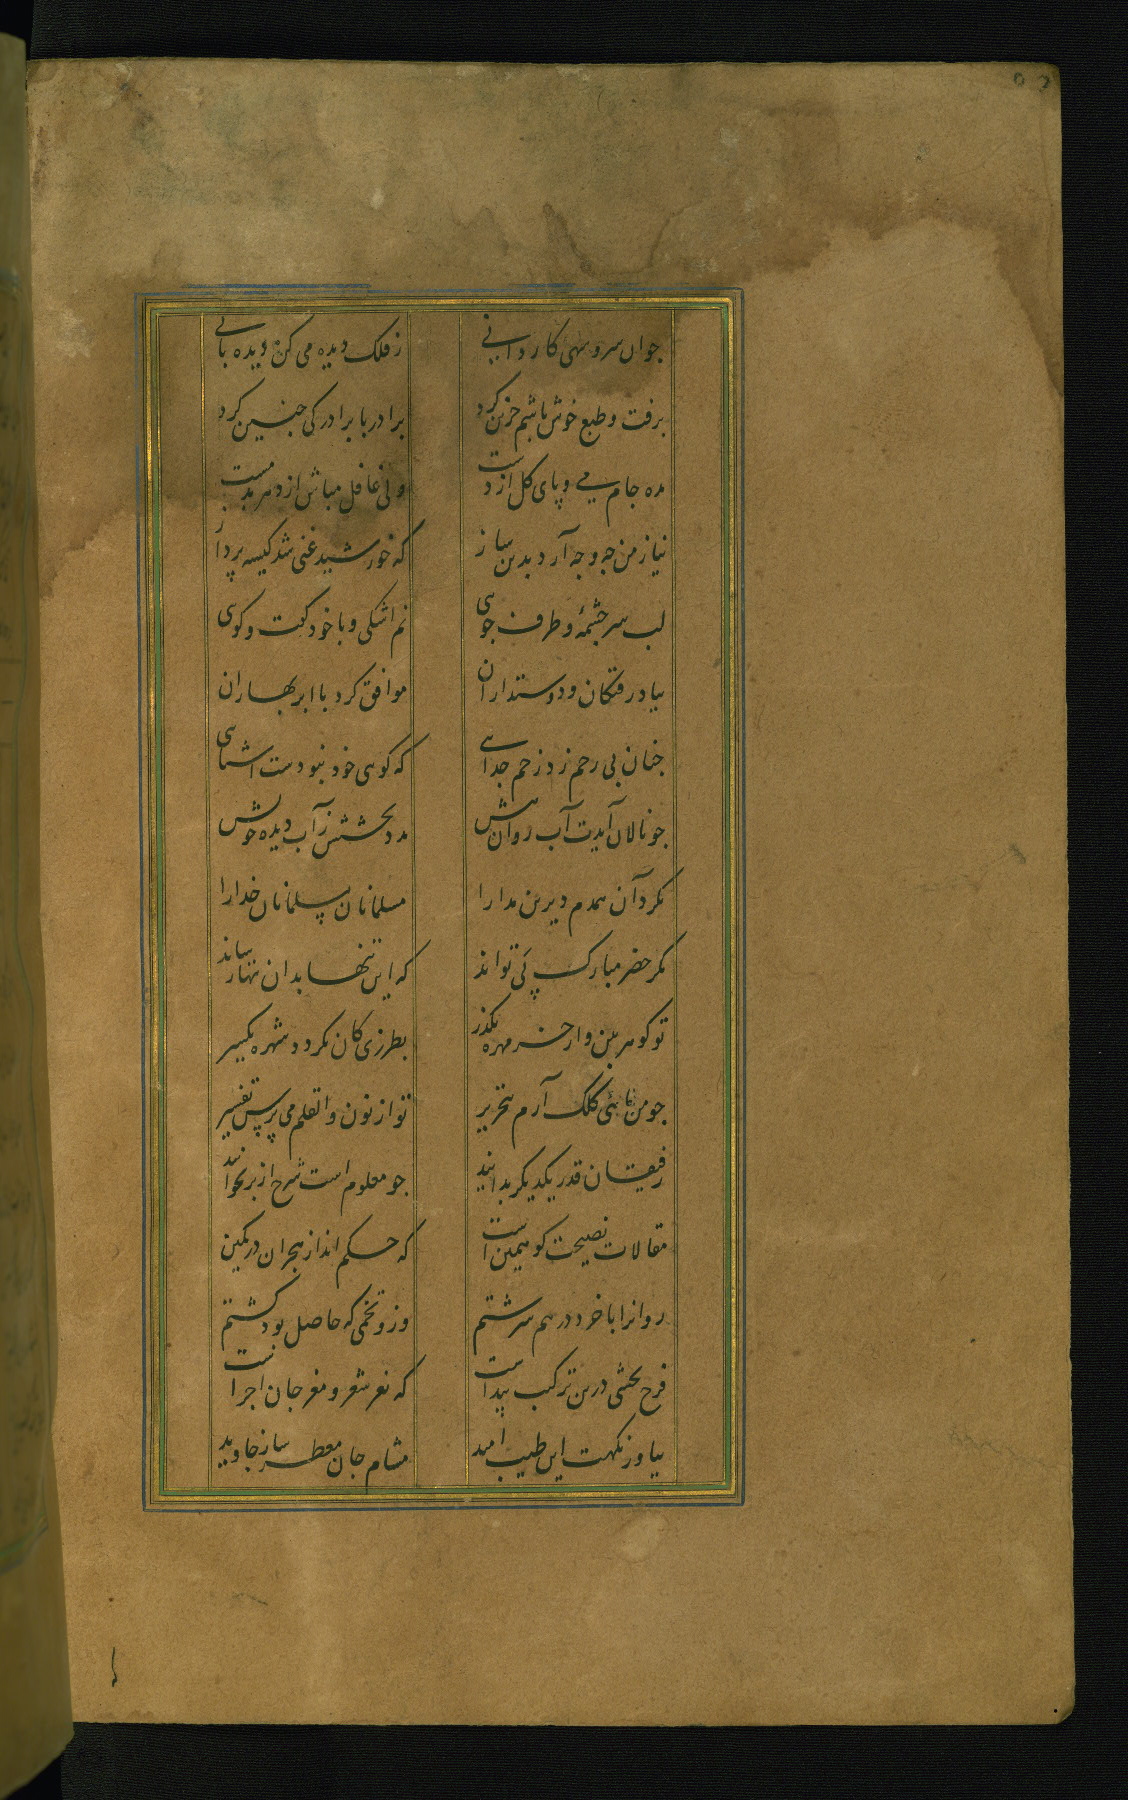 جوان سرو سهی کاردانی ز فلک دیده می کن دیده بانی
برفت و طبع خوش باشم حزین کرد برادر با برادر کی جنین کرد
مده جام می و پای کل از دست ولی غافل مباش از دهر بدمست
نیاز من جه وجه آرد بدین ساز که خورشید غنی شد کیسه پرداز
لب سر جشمهٔ و طرف جوی نم اشکی و با خود کفت و کوی
بیاد رفتکان و دوستداران موافق کرد با ابر بهاران
جنان بی رحم زد زخم جدایی که کوی خود نبودست آشنایی
جو نالان آیدت آب روان پیش مدد بخشش ز آب دیده خویش
نکرد آن همدم دیرین مدارا مسلمانان مسلمانان خدارا
مکر خضر مبارک پی تواند که این تنها بدان تنها رساند
تو کوهر بین و از خر مهره بکذر بطرزی کان نکردد شهره بکسر
جو من ماهی کلک آرم بتحریر تو از نون والقلم می پرس تفسیر
رفیقان قدر یکدیکر بدانید جو معلوم است شرح از بر بخوانید
مقالات نصیحت کو همین است که حکم انداز هجران در کمین است
روانرا با خرد در هم سرشتم وزو تخمی که حاصل بود کشتم
فرح بخشی درین ترکیب پیداست که نغز شعر و مغز جان اجراست
بیا وز نکهت این طیب امید مشام جان معطر ساز جاوید